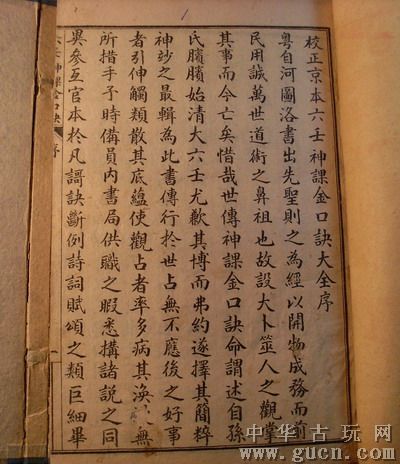 校正京本六壬神課金口訣大全序
粵自河圖洛書出先聖則之為經以開物成務而前
民用誠萬世道術之鼻祖也故設大卜筮人之觀掌
其事而今亡矣惜哉世傳神課金口訣命謂述自孫
氏臏始清大六壬尤歉其博而弗約遂擇其簡粹
神妙之最輯為此書傳行於世占無不應後之好事
者引伸觸類散其底蘊使觀占者率多病其渙無
所措手予時備員内書局供職之暇悉搆諸說之同
異參互官本於凡謌訣斷例詩詞賦頌之類巨細畢
壬神課金口訣 序 一
中华古玩网
www.gucn.com